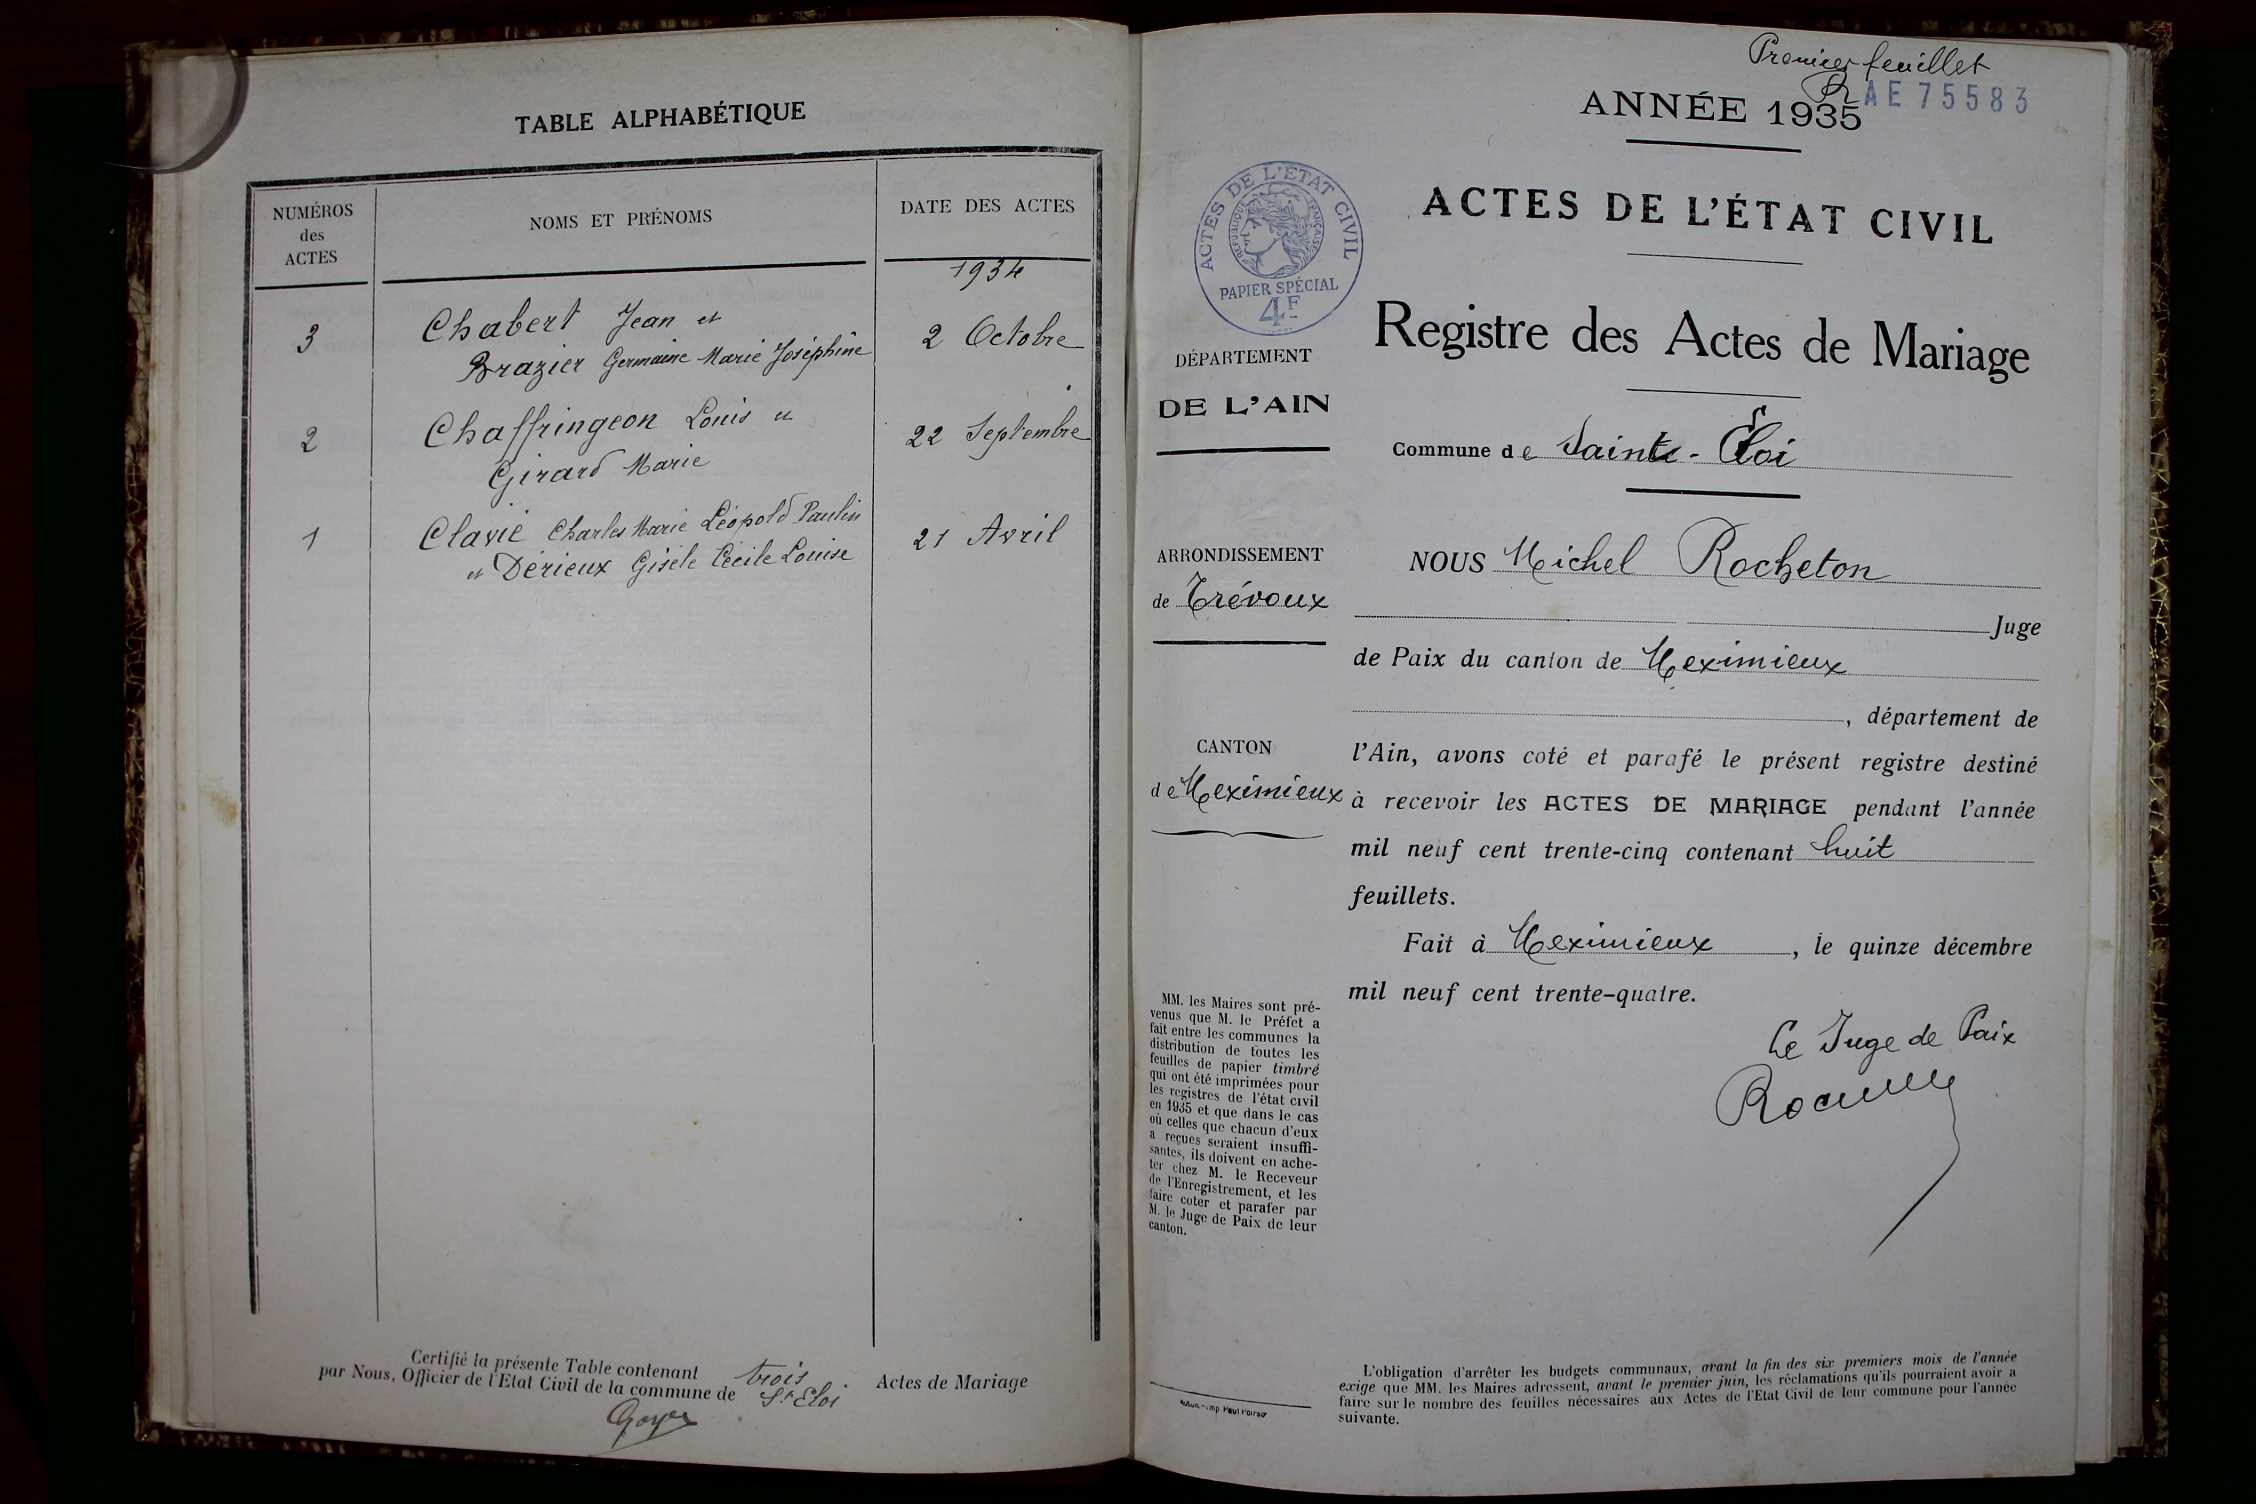 TABLE ALPHABÉTIQUE
NUMÉROS
des
ACTES
NOMS ET PRÉNOMS
DATE DES ACTES
1934
3
Chabert Jean et
2 Octobre
Brazier Germaine Marie Joséphine
2
Chaffringeon Louis et
22 Septembre
Girard Marie
1
Clavié Charles Marie Léopold Paulin
21 Avril
et Dérieux Gisèle Cécile Louise
Certifié la présente Table contenant trois Actes de Mariage
par Nous, Officier de l'Etat Civil de la commune de St Eloi
Premier feuillet
AE 75583
ANNÉE 1935
ACTES DE L'ÉTAT CIVIL
ACTES DE L'ÉTAT CIVIL
RÉPUBLIQUE FRANÇAISE
PAPIER SPÉCIAL
4F
Registre des Actes de Mariage
DÉPARTEMENT
DE L'AIN
Commune de Sainte-Eloi
ARRONDISSEMENT
de Trévoux
CANTON
de Meximieux
NOUS Michel Rocheton
Juge
de Paix du canton de Meximieux
, département de
l'Ain, avons coté et parafé le présent registre destiné
à recevoir les ACTES DE MARIAGE pendant l'année
mil neuf cent trente-cinq contenant huit
feuillets.
Fait à Meximieux, le quinze décembre
mil neuf cent trente-quatre.
Le Juge de Paix
MM. les Maires sont pré-
venus que M. le Préfet a
fait entre les communes la
distribution de toutes les
feuilles de papier timbré
qui ont été imprimées pour
les registres de l'état civil
en 1935 et que dans le cas
où celles que chacun d'eux
a reçues seraient insuffi-
santes, ils doivent en ache-
ter chez M. le Receveur
de l'Enregistrement, et les
faire coter et parafer par
M. le Juge de Paix de leur
canton.
L'obligation d'arrêter les budgets communaux, avant la fin des six premiers mois de l'année
exige que MM. les Maires adressent, avant le premier juin, les réclamations qu'ils pourraient avoir à
faire sur le nombre des feuilles nécessaires aux Actes de l'Etat Civil de leur commune pour l'année
suivante.